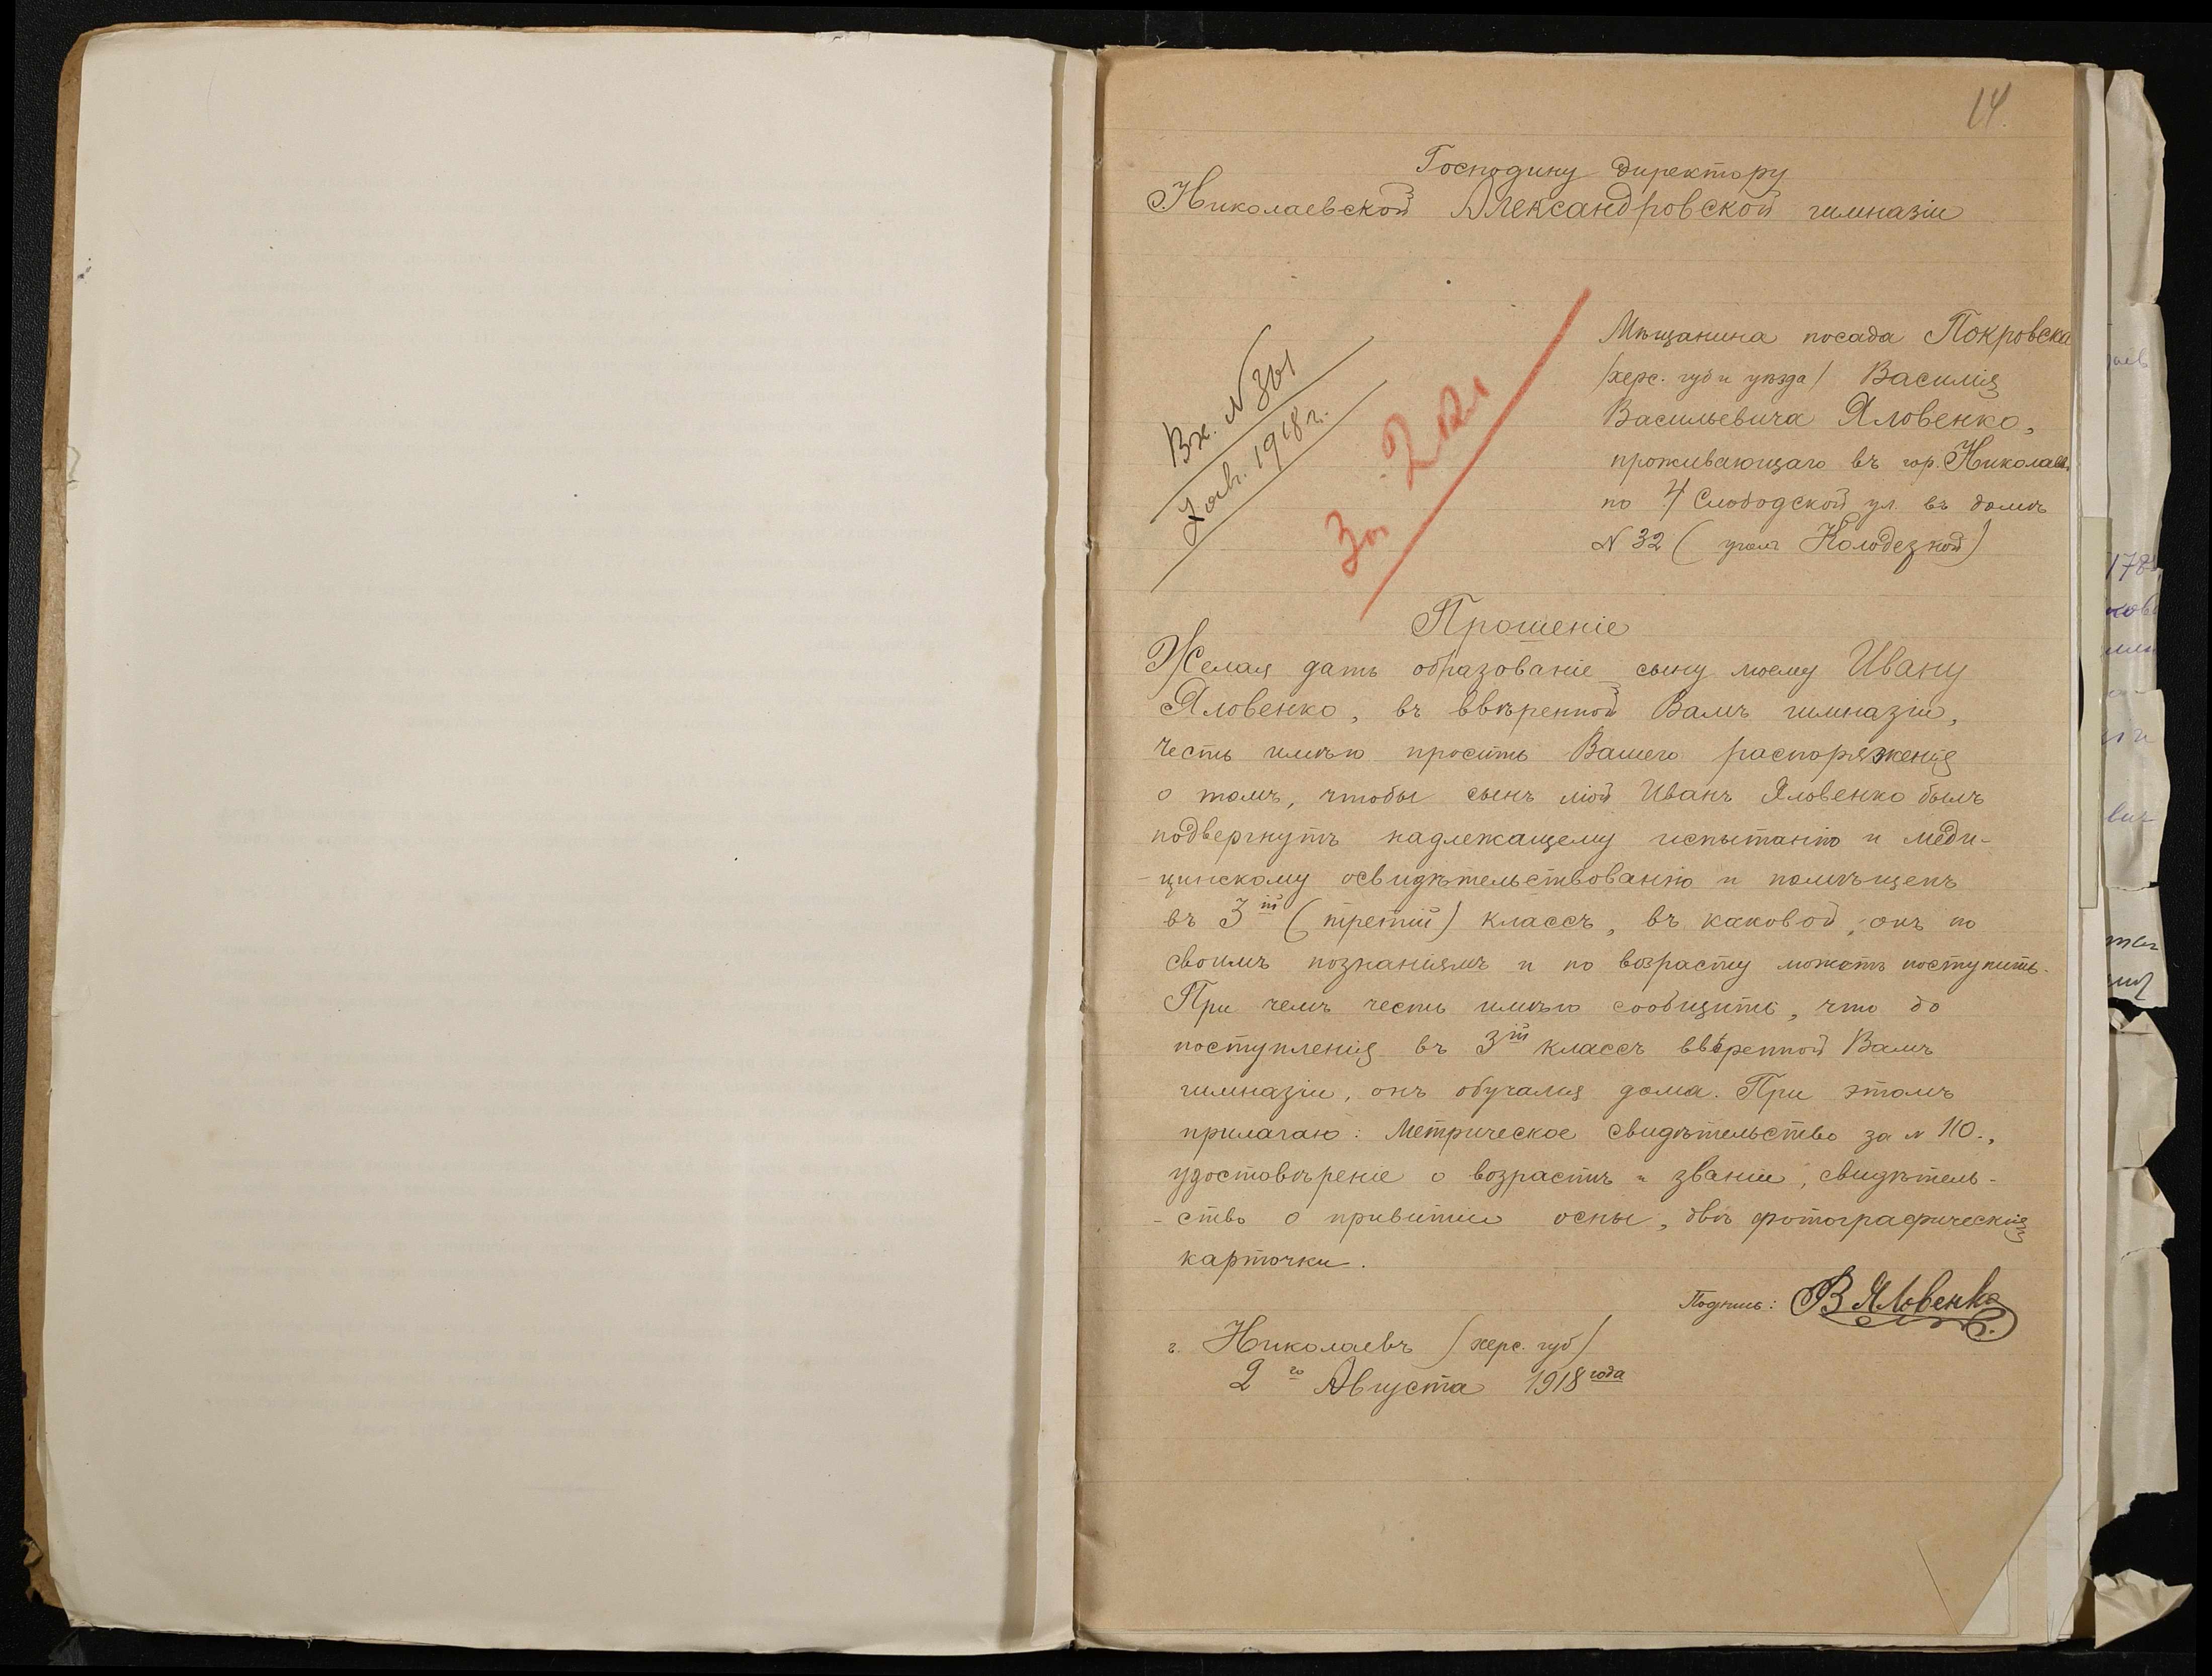 14.
Господину директору
Николаевской Александровской гимназіи
Мѣщанина посада Покровска
/херс. губ и уѣзда/ Василія
Васильевича Яловенко,
проживающаго въ гор. Николаев.
по 4 Слободской ул. въ домѣ
№ 32 ( уголъ Колодезной)
Вх. № 361
2 авг. 1918 г.
Прошеніе
Желая дать образованіе сыну моему Ивану
Яловенко, въ ввѣренной Вамъ гимназіи,
честь имѣю просить Вашего распоряженія
о томъ, чтобы сынъ мой Иванъ Яловенко былъ
подвергнутъ надлежащему испытанію и меди-
-цинскому освидѣтельствованію и помѣщенъ
въ 3ій (третій) классъ, въ каковой, онъ по
своимъ познаніямъ и по возрасту можетъ поступить.
При чемъ честь имѣю сообщить, что до
поступленія въ 3ій классъ ввѣренной Вамъ
гимназіи, онъ обучался дома. При этомъ
прилагаю: Метрическое свидѣтельство за № 110.,
удостовѣреніе о возрастѣ и званіи, свидѣтель-
-ство о привитіи оспы, двѣ фотографическія
карточки.
Подпись: В Яловенко
г. Николаевъ /херс. губ/
2го Августа 1918 года